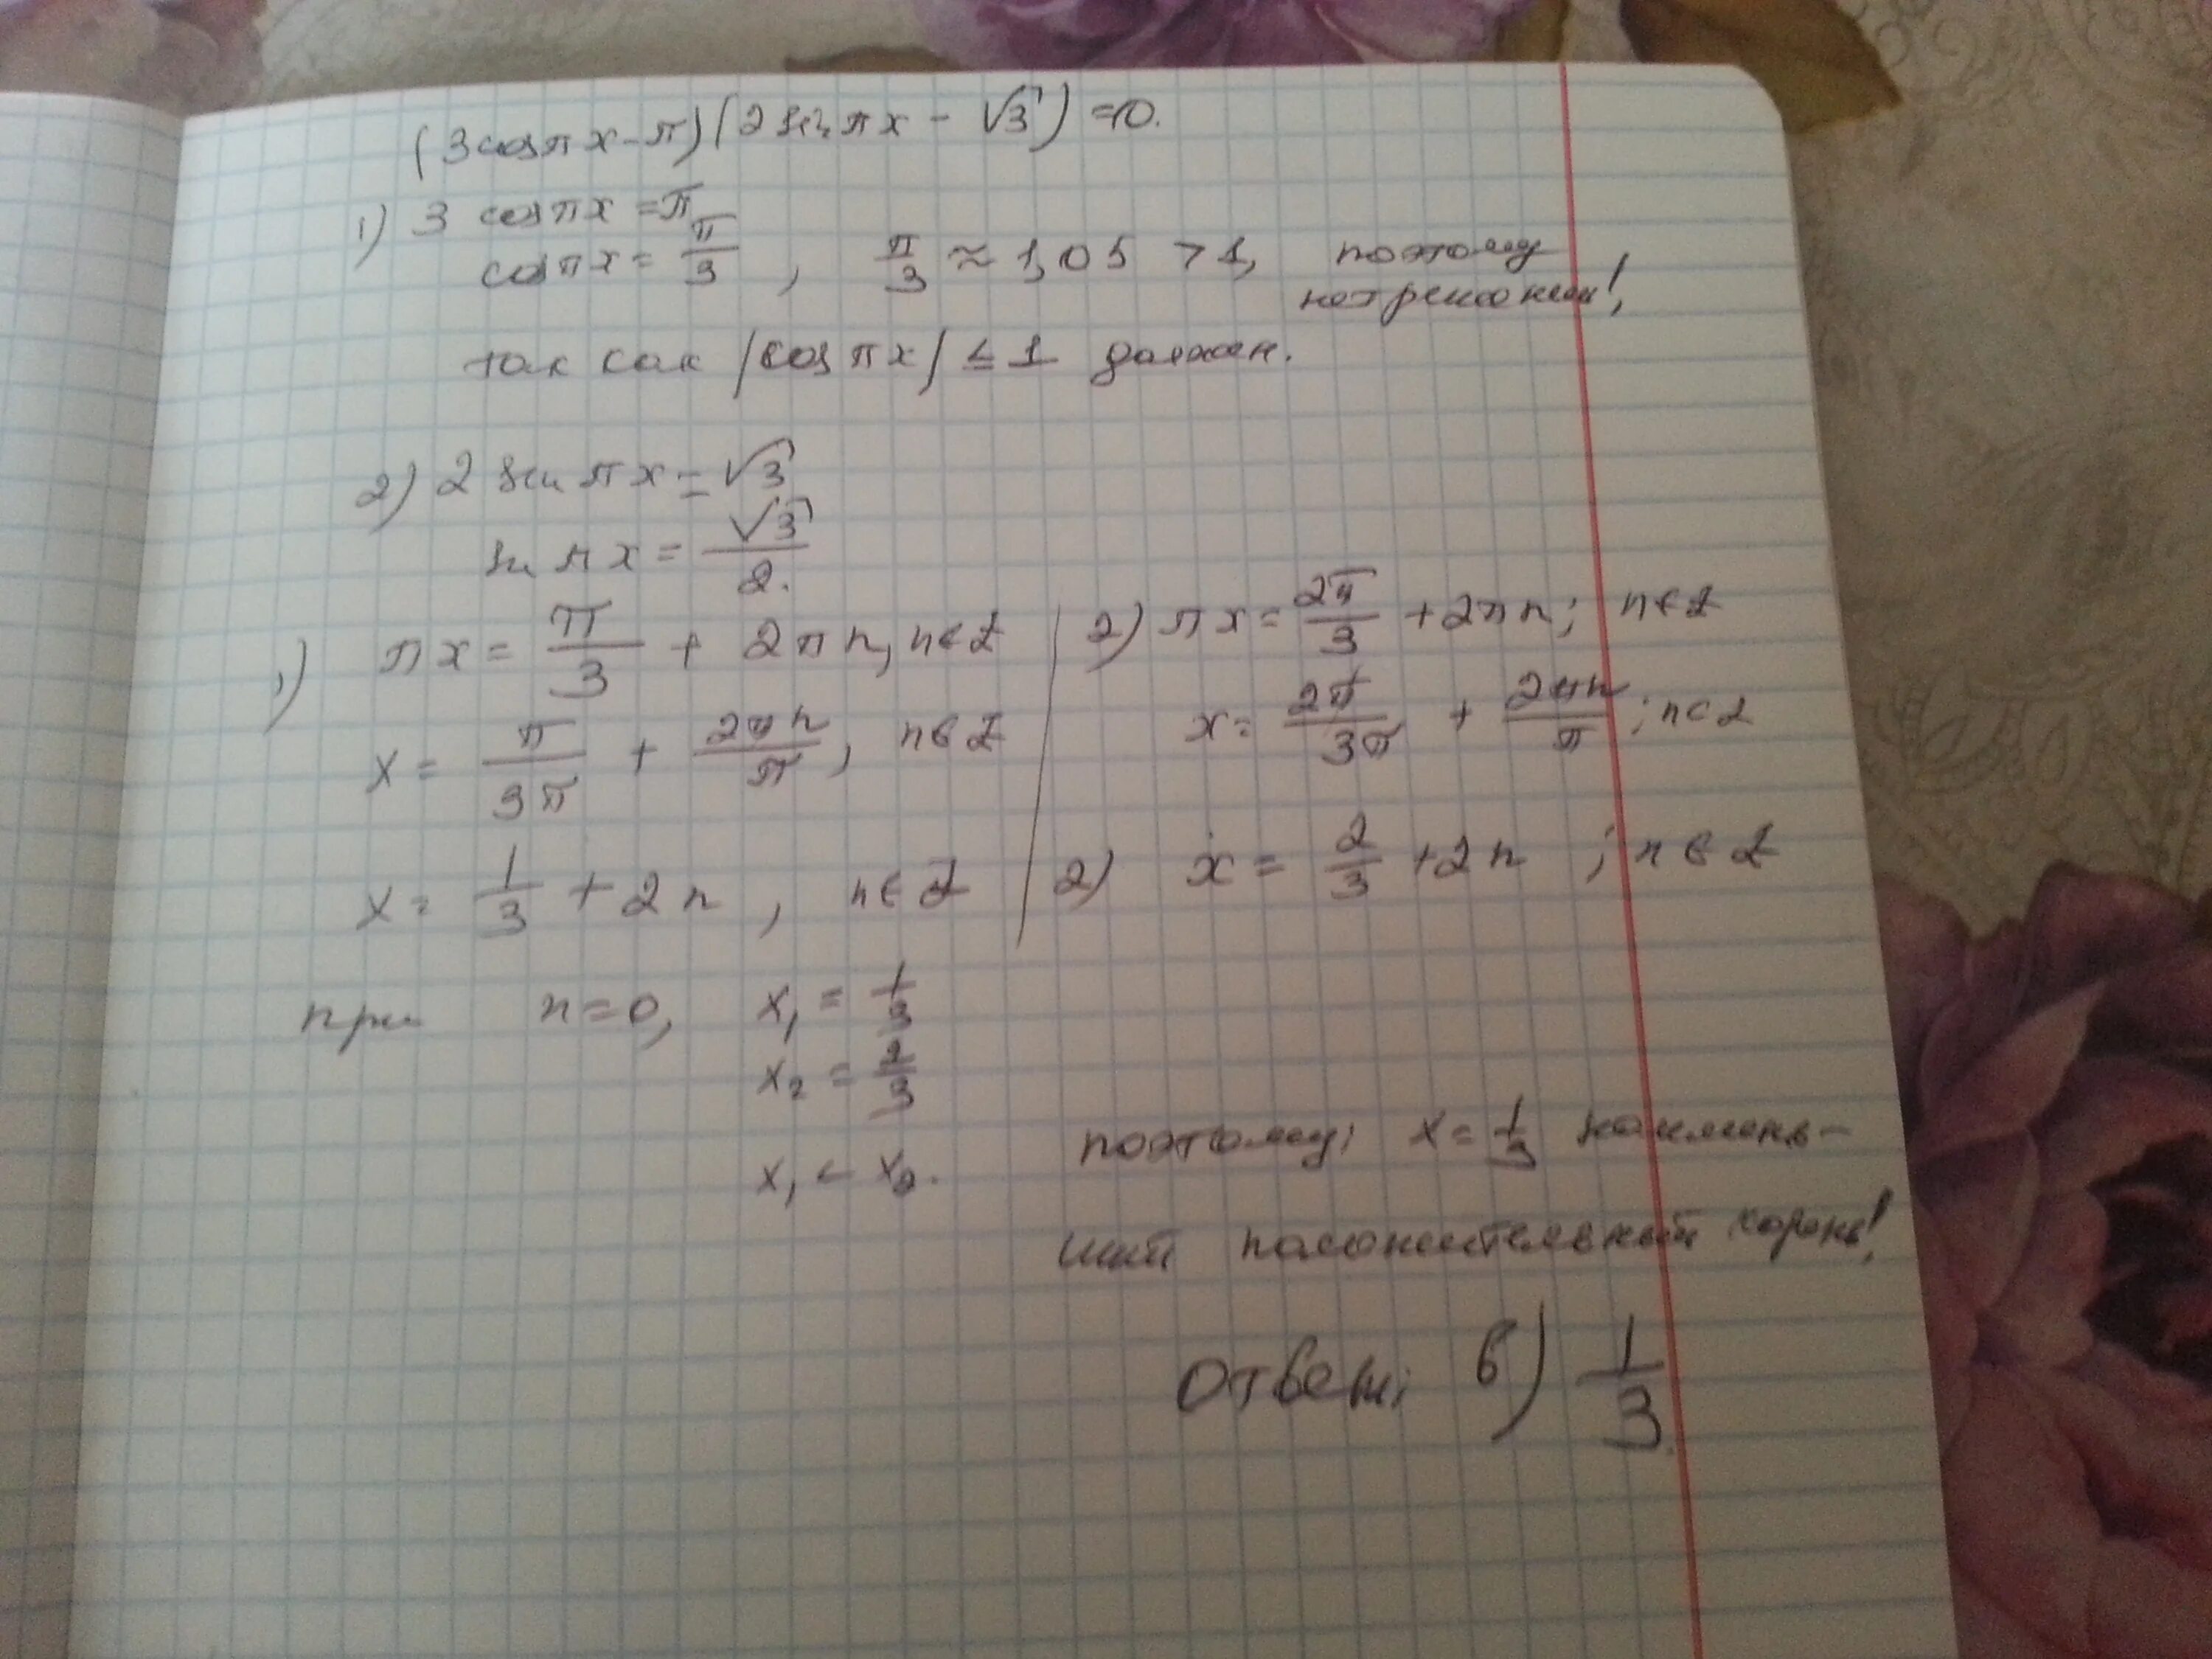 (3cosπx-π)(2sinπx-√3)=0.
1) 3 cosπx=π
cosπx=π/3, π/3≈1,05>1, поэтому
нет решения!,
так как |cosπx|≤1 должен.
2) 2 sinπx=√3
sinπx=√3/2.
1) πx=π/3+2πn, n∈Z 2) πx=2π/3+2πn; n∈Z
x=π/3π+2πn/π, n∈Z x=2π/3π+2πn/π; n∈Z
x=1/3+2n, n∈Z 2) x=2/3+2n; n∈Z
при n=0, x₁=1/3
x₂=2/3
x₁<x₂. поэтому; x=1/3 наимень-
ший положительный корень!
Ответ: в) 1/3.